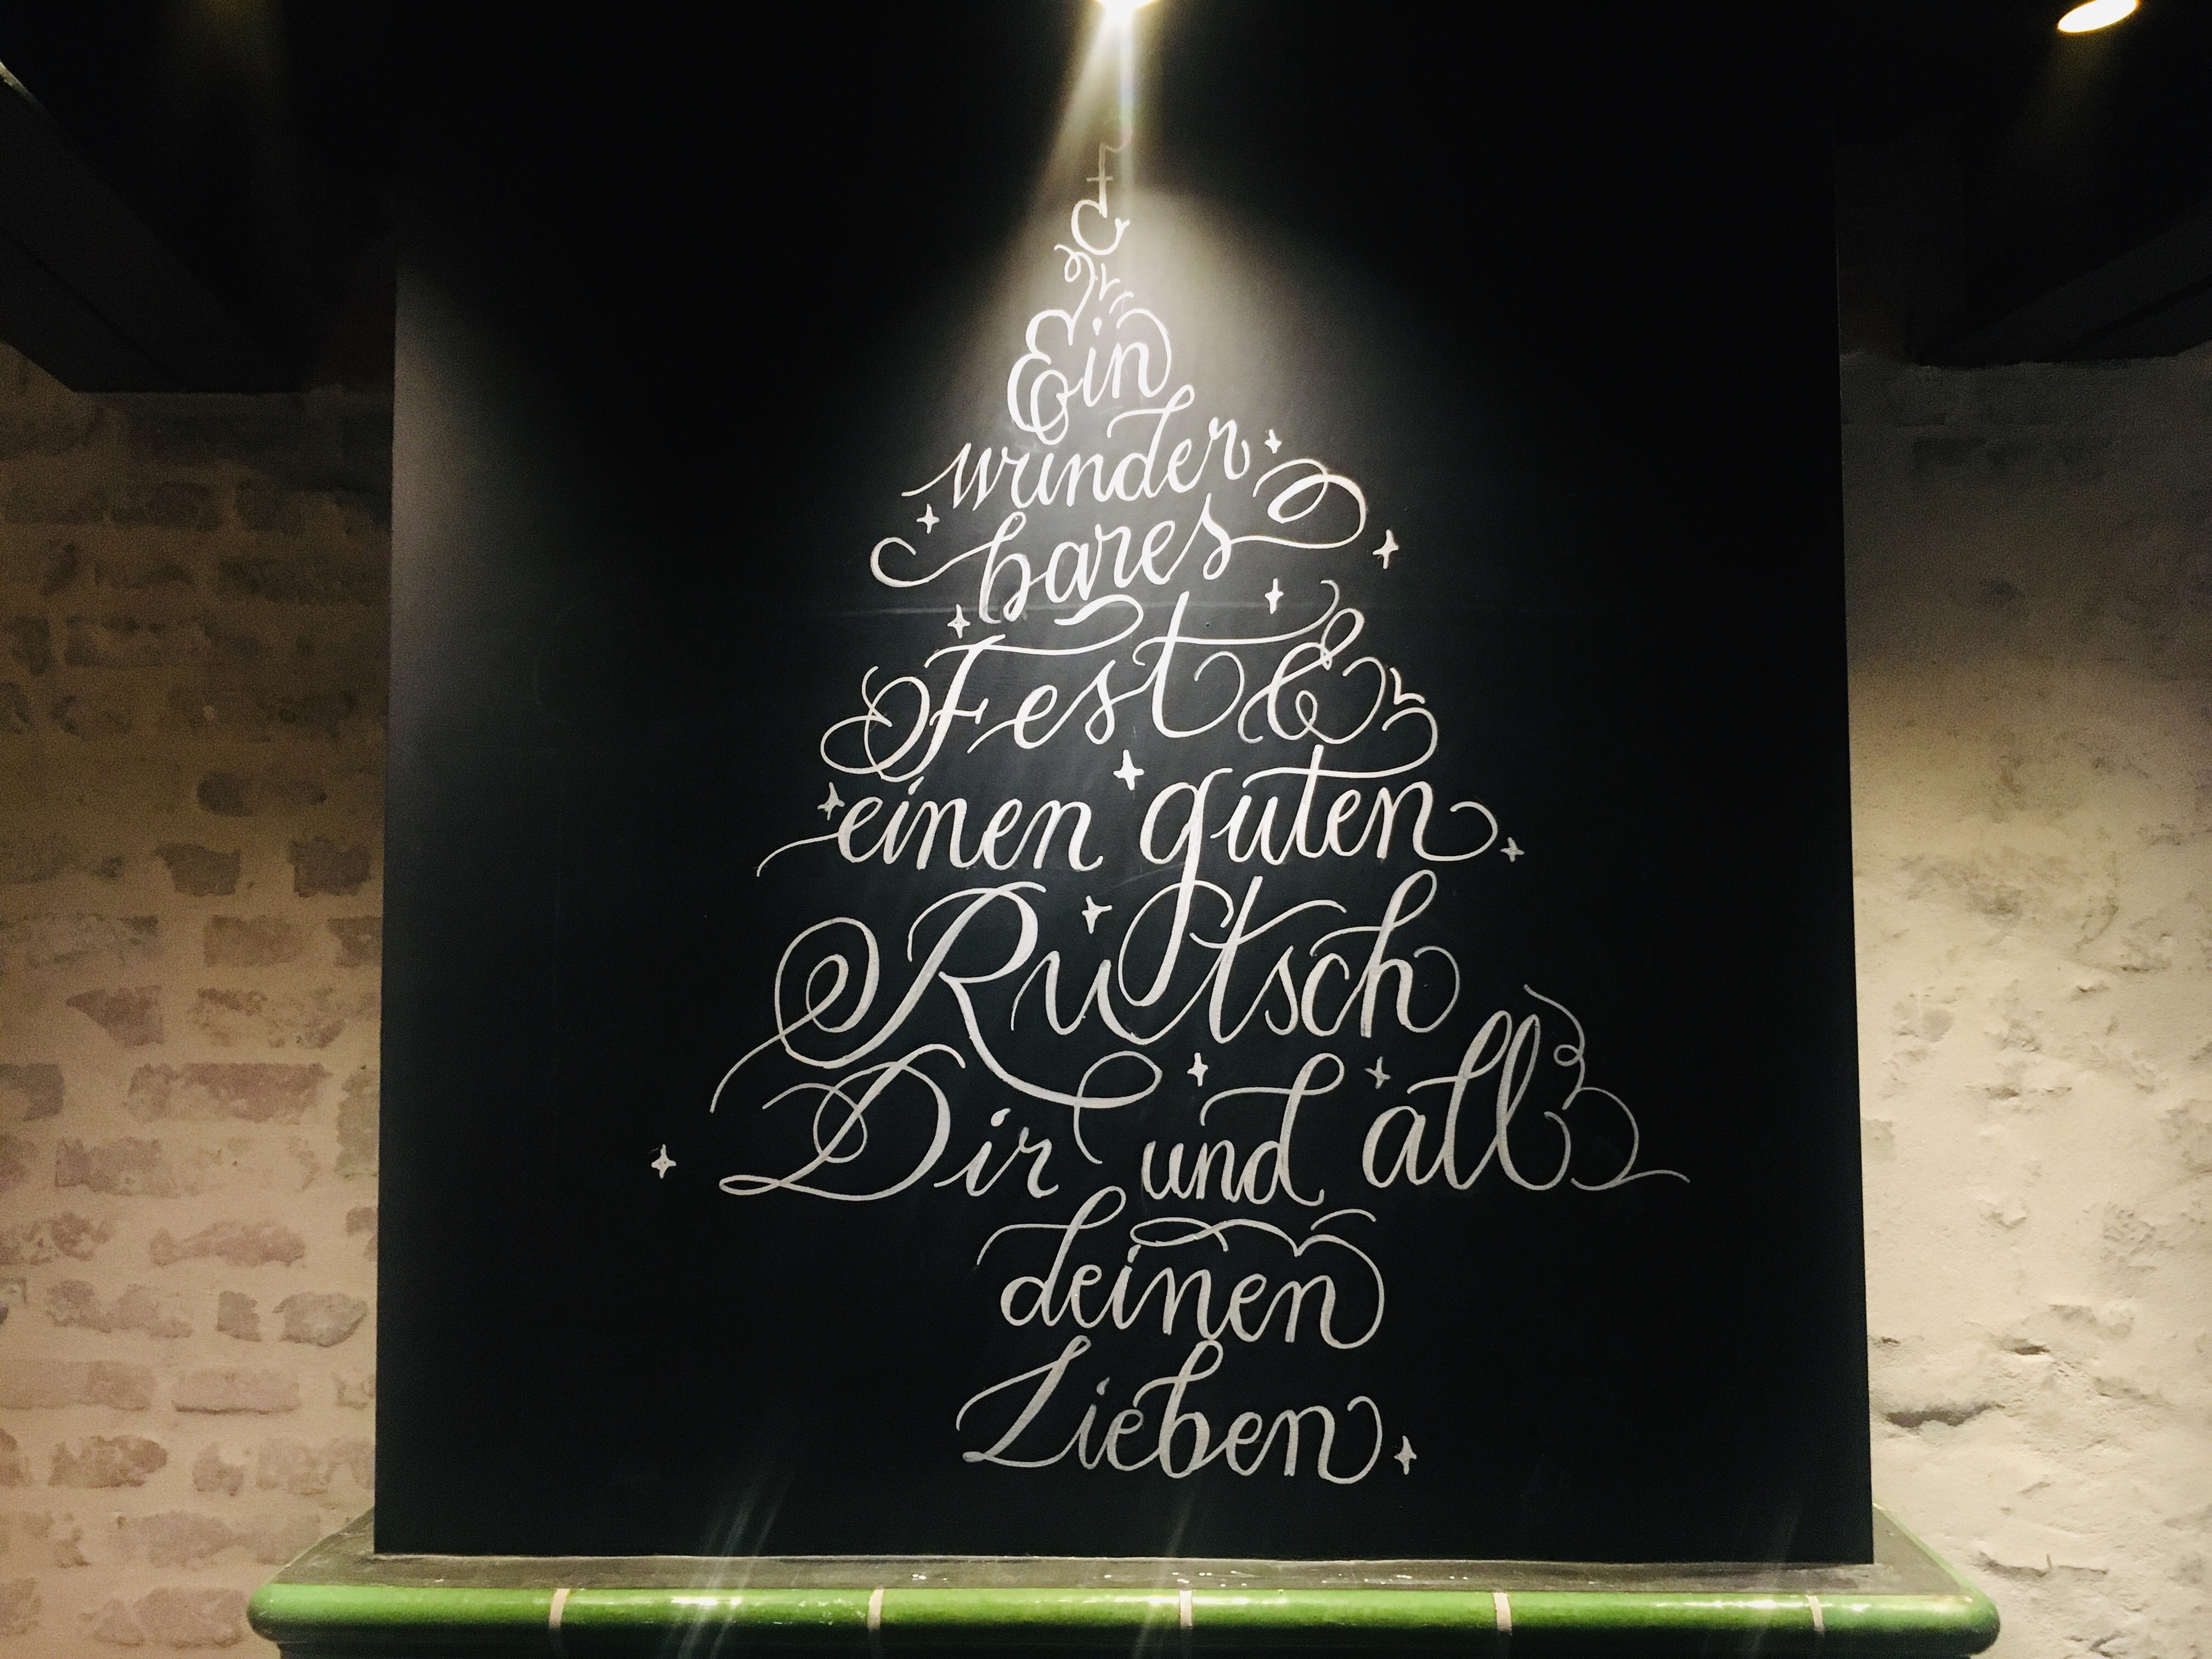 Ein
wunder
bares
Fest &
einen guten
Rutsch
Dir und all
deinen
Lieben